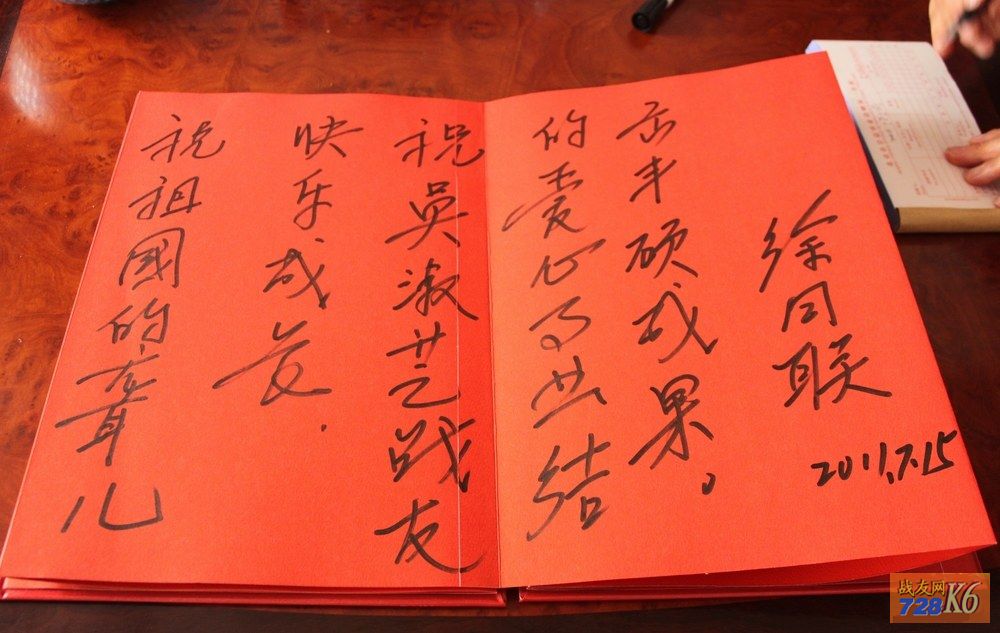 祝祖國的聋儿
快乐成长.
祝吳淑艺战友
的爱心事业结
出丰硕成果。
徐同联
2011.7.15
战友网
728K6